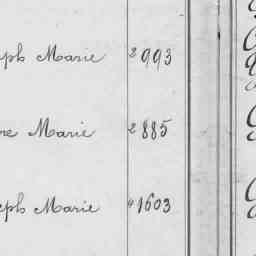 eph Marie 2 993
re Marie 2 885
eph Marie 4 1603